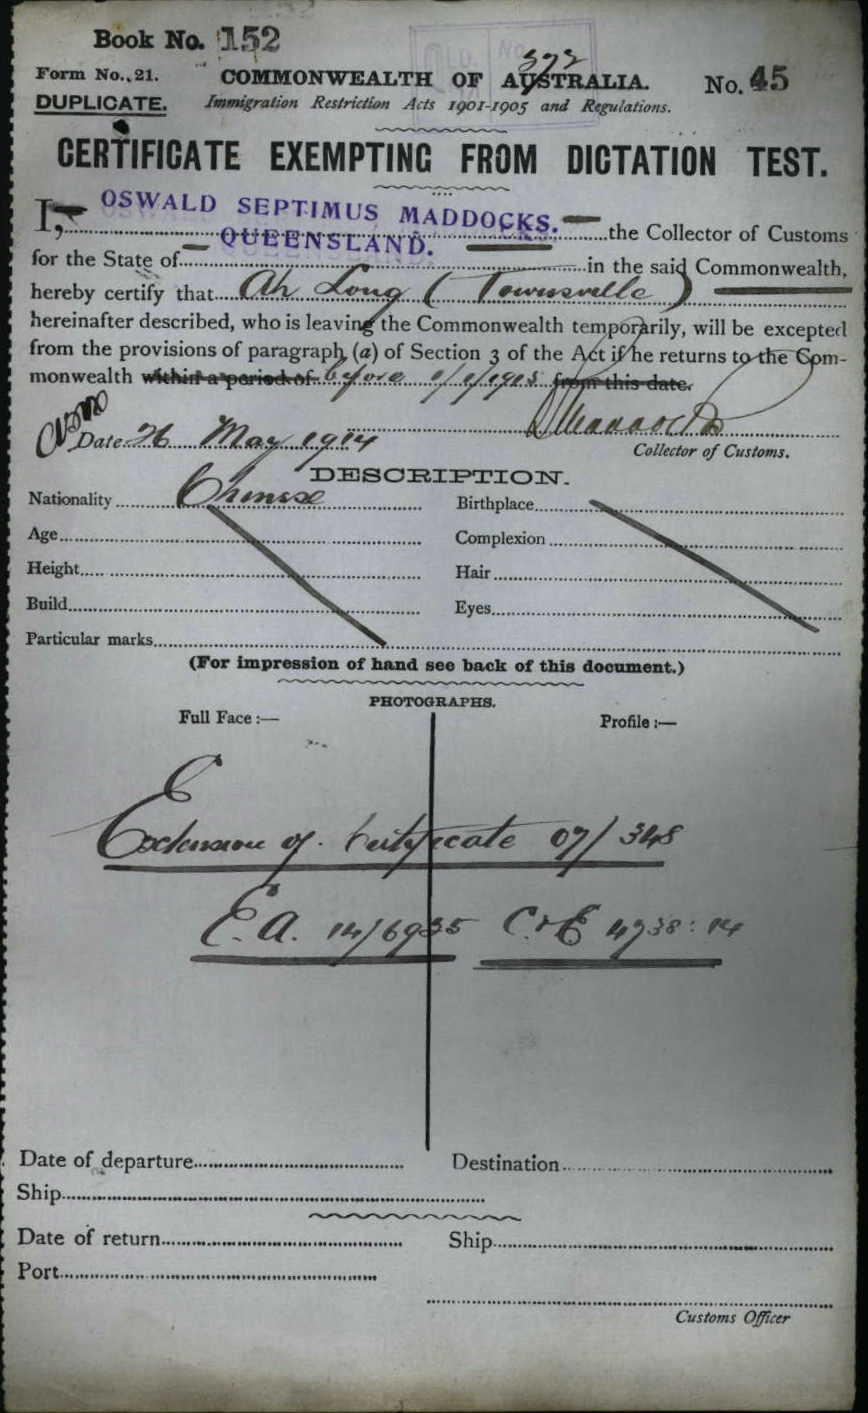 Book No. 152
QLD. No.
372
Form No. 21. COMMONWEALTH OF AUSTRALIA. No. 45
DUPLICATE. Immigration Restriction Acts 1901-1905 and Regulations.
CERTIFICATE EXEMPTING FROM DICTATION TEST.
I, OSWALD SEPTIMUS MADDOCKS. the Collector of Customs
for the State of QUEENSLAND. in the said Commonwealth,
hereby certify that Ah Long (Townsville)
hereinafter described, who is leaving the Commonwealth temporarily, will be excepted
from the provisions of paragraph (a) of Section 3 of the Act if he returns to the Com-
monwealth within a period of before 1/1/1915 from this date.
Date 26 May 1914
Collector of Customs.
DESCRIPTION.
Nationality Chinese Birthplace
Age Complexion
Height Hair
Build Eyes
Particular marks
(For impression of hand see back of this document.)
PHOTOGRAPHS.
Full Face :— Profile :—
Extension of Certificate 07/348
E.A. 14/6935 C&E 4738:14
Date of departure Destination
Ship
Date of return Ship
Port
Customs Officer